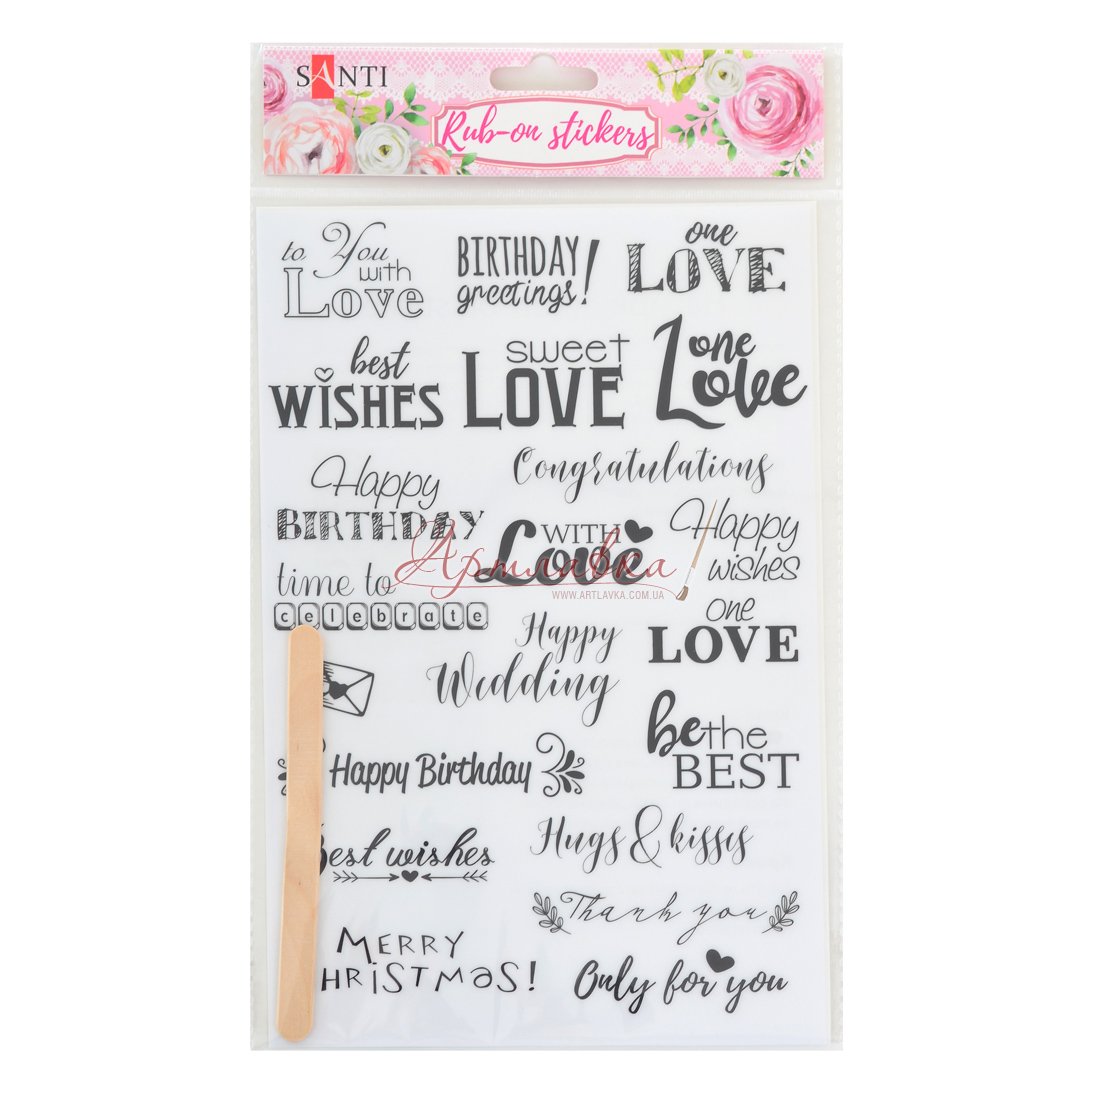 SANTI
Rub-on stickers
to You
with
Love
BIRTHDAY
greetings!
one
LOVE
best
WISHES
sweet
LOVE
one
Love
Happy
BIRTHDAY
Congratulations
time to
celebrate
WITH
Love
Happy
wishes
Артлавка
WWW.ARTLAVKA.COM.UA
one
LOVE
Happy
Wedding
be the
BEST
Happy Birthday
Hugs & kisses
Best wishes
Thank you
MERRY
HRISTMAS!
Only for you